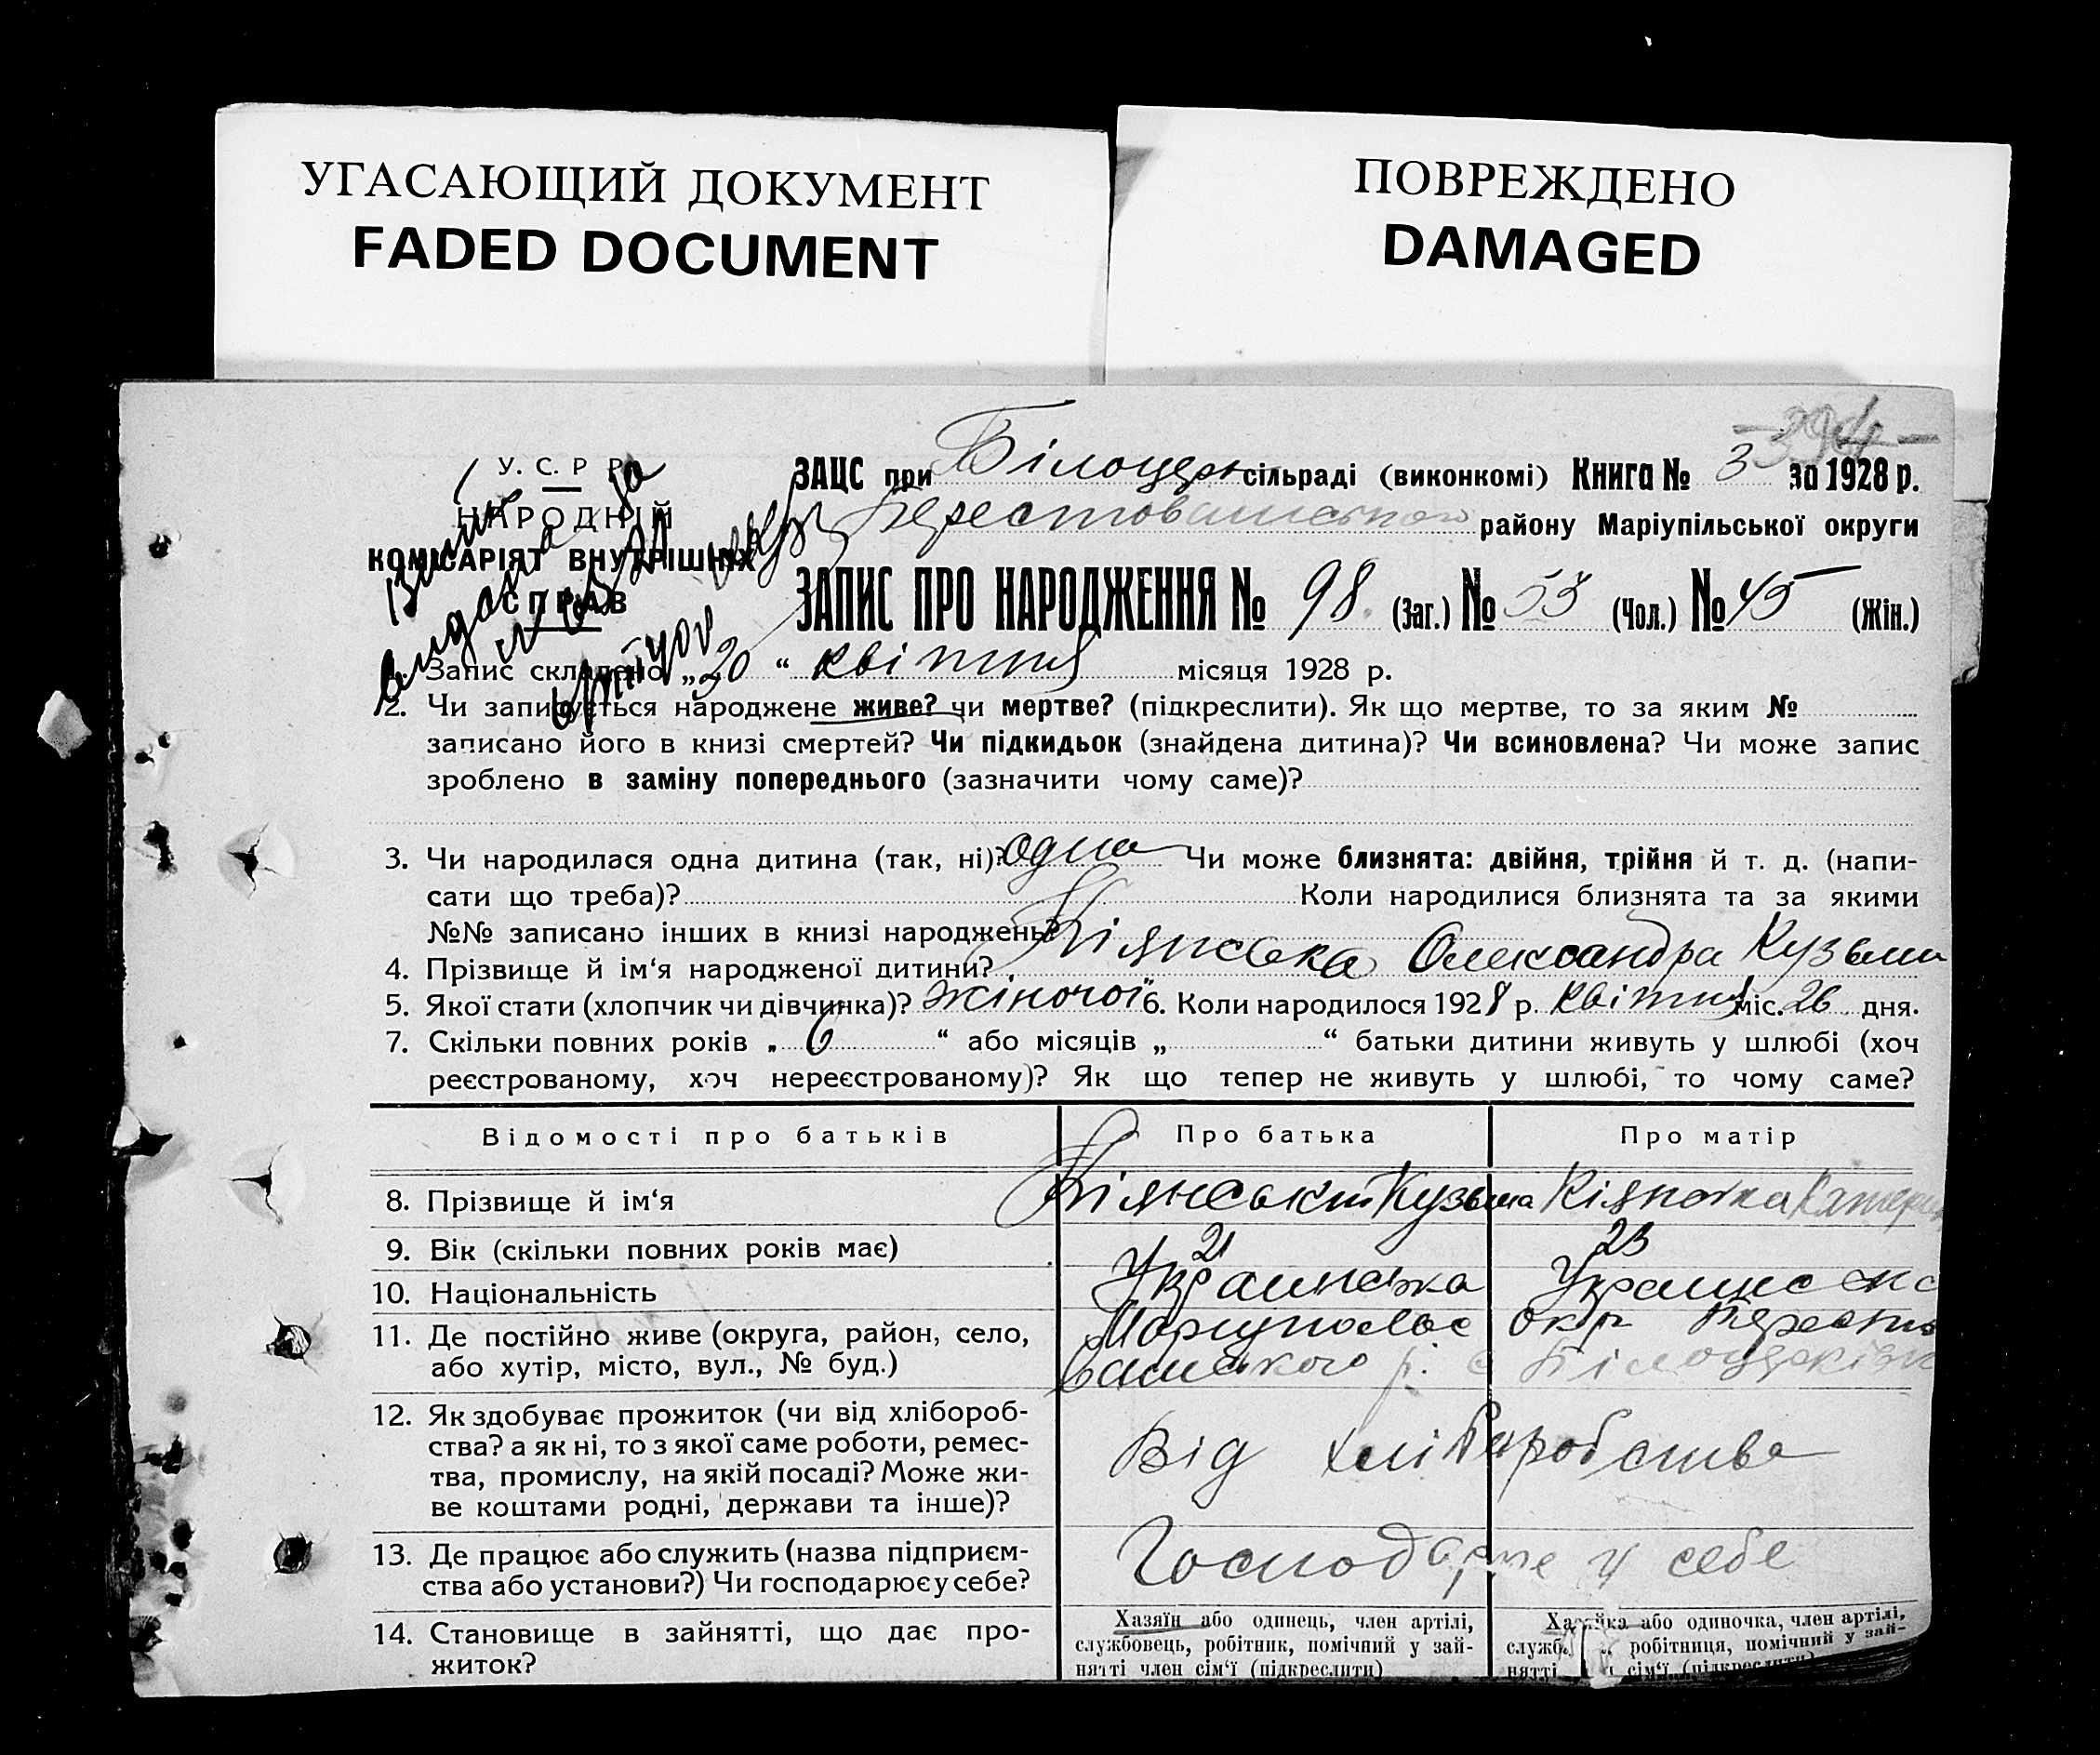 УГАСАЮЩИЙ ДОКУМЕНТ
FADED DOCUMENT
ПОВРЕЖДЕНО
DAMAGED
У. С. Р Р
НАРОДНІЙ
КОМІСАРІЯТ ВНУТРІШНІХ
СПРАВ
ЗАЦС при Білоцерк сільраді (виконкомі) Книга № 3 за 1928 р.
району Маріупільської округи
ЗАПИС ПРО НАРОДЖЕННЯ № 98 (Заг.) № 53 (Чол.) № 45 (Жін.)
Запис складено „30“ квітня місяця 1928 р.
2. Чи записується народжене живе? чи мертве? (підкреслити). Як що мертве, то за яким №
записано його в книзі смертей? Чи підкидьок (знайдена дитина)? Чи всиновлена? Чи може запис
зроблено в заміну попереднього (зазначити чому саме)?
3. Чи народилася одна дитина (так, ні)? одна Чи може близнята: двійня, трійня й т. д. (напи-
сати що треба)? Коли народилися близнята та за якими
№№ записано інших в книзі народжень?
4. Прізвище й ім‘я народженої дитини? Кіянська Олександра Кузьми
5. Якої стати (хлопчик чи дівчинка)? Жіночої 6. Коли народилося 1928 р. квітня міс. 26 дня.
7. Скільки повних років „ 6 “ або місяців „ “ батьки дитини живуть у шлюбі (хоч
реєстрованому, хоч нереєстрованому)? Як що тепер не живуть у шлюбі, то чому саме?
Відомості про батьків Про батька Про матір
8. Прізвище й ім‘я Кіянський Кузьма Кіянська Катери
9. Вік (скільки повних років має) 21 23
10. Національність Українська Українська
11. Де постійно живе (округа, район, село, Маріупольс окр Берестов
або хутір, місто, вул., № буд.) р. с Білоцерківк
12. Як здобуває прожиток (чи від хлібороб-
ства? а як ні, то з якої саме роботи, ремес- Від хліборобства
тва, промислу, на якій посаді? Може жи-
ве коштами родні, держави та інше)?
13. Де працює або служить (назва підприєм- Господарює у себе
ства або установи?) Чи господарює у себе?
14. Становище в зайнятті, що дає про-
житок?
Хазяїн або одинець, член артілі,
службовець, робітник, помічний у зай-
нятті член сім‘ї (підкреслити)
Хазяйка або одиночка, член артілі,
служб робітниця, помічний у зай-
нятті сім‘ї (підкреслити)